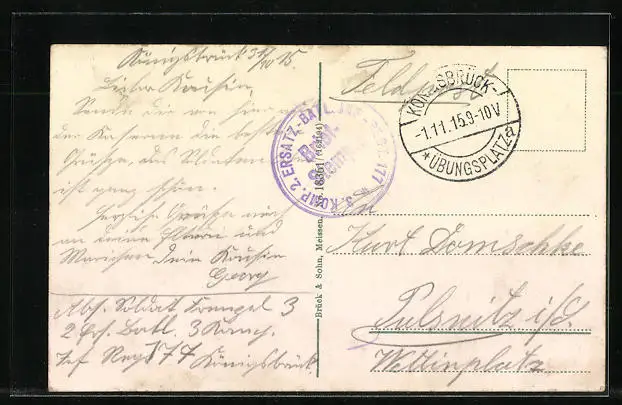 Königsbrück 31/10 15.
Lieber Kousin,
Sende dir von hier aus
der Kaserne die besten
Grüße, das Soldatenleben
ist ganz schön.
Herzliche Grüße auch
an deine Eltern und
Dein Kousin
Georg
Abs. Soldat 3
2 Ers. Batl. 3 Komp.
Inf Reg 177 Königsbrück
Brück & Sohn, Meissen.
3. KOMP. 2. ERSATZ-BATL. INF. 177
Brief-
Stempel
Feldpost
KÖNIGSBRÜCK-
-1.11.15.9-10V
* ÜBUNGSPLATZ a
An
Kurt Domschke
Pulsnitz i/S.
Wettinplatz